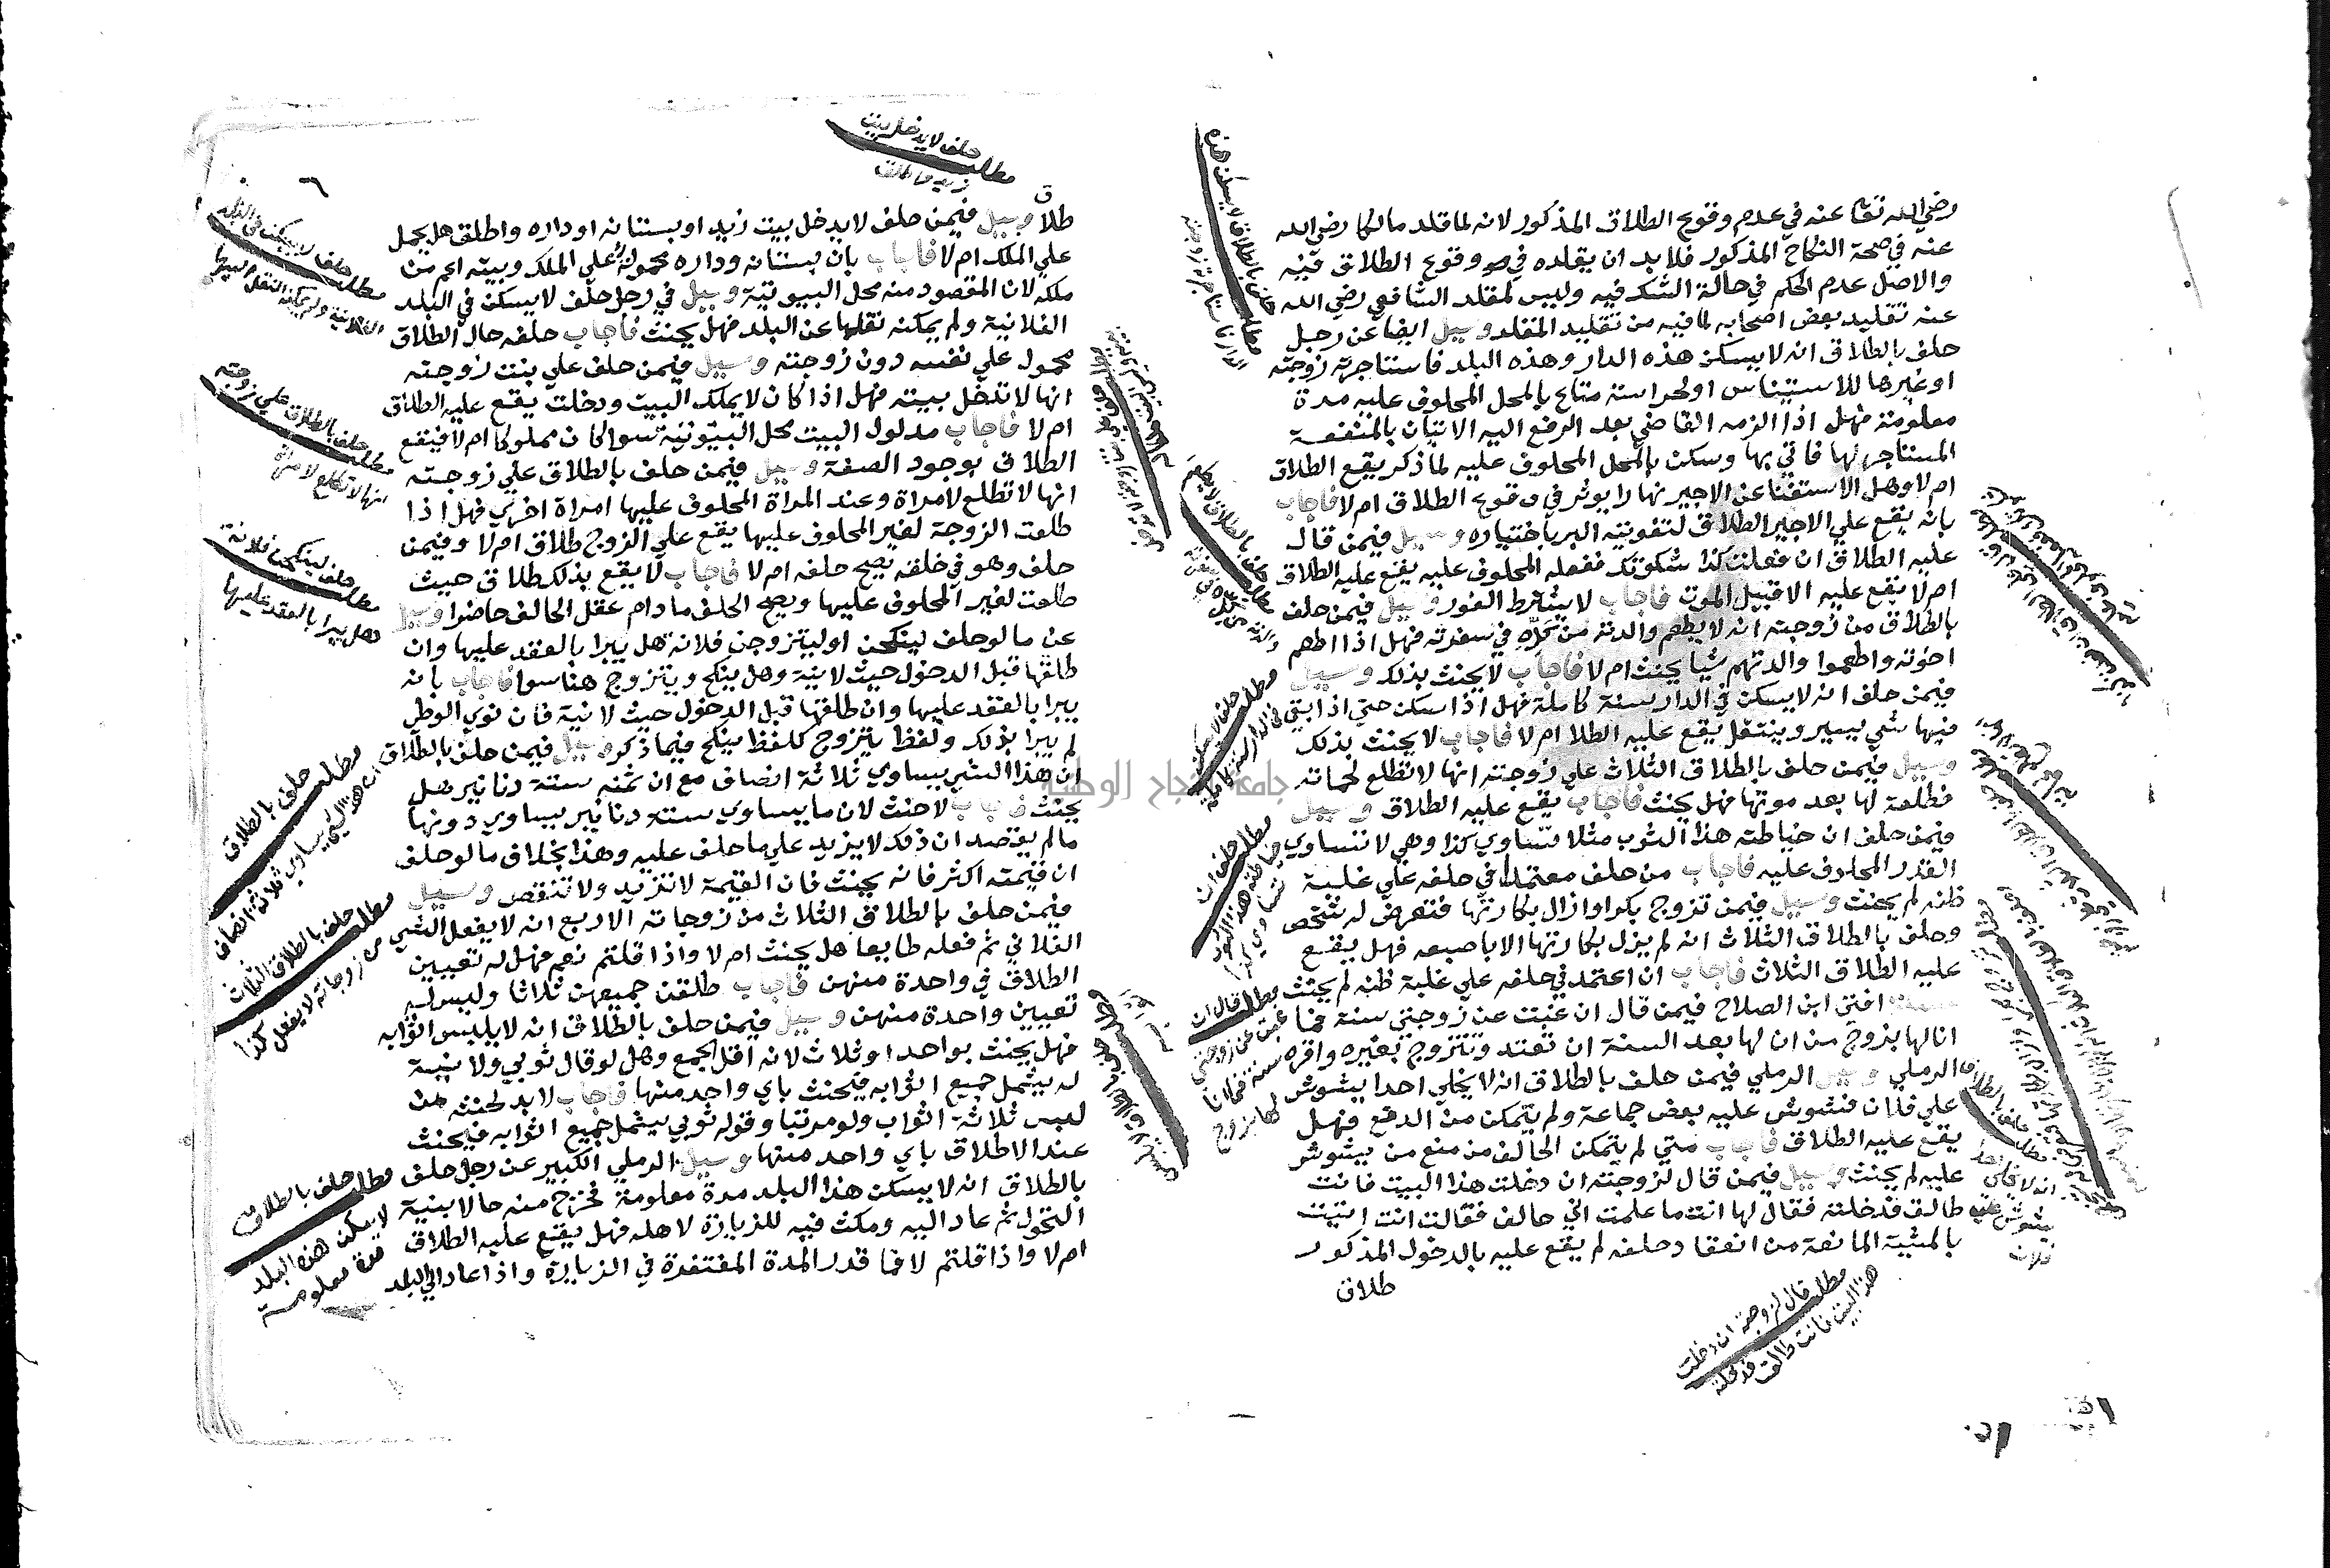 رضي الله تعا عنه في عدم وقوع الطلاق المذكور لانه لما قلد مالكا رضي الله
عنه في صحة النكاح المذكور فلابد ان يقلده في وقوع الطلاق فيه
والاصل عدم الحكم في حالة الشك فيه وليس لمقلد الشافعي رضي الله
عنه تقليد بعض اصحابه لما فيه من تقليد المقلد وسيل ايضا عن رجل
حلف بالطلاق انه لا يسكن هذه الدار وهذه البلد فاستاجرته زوجته
او غيرها للاستيناس او لحراسة متاع بالمحل المحلوف عليه مدة
معلومة فهل اذا الزمه القاضي بعد الرفع اليه الاتيان بالمنفعة
المستاجر لها فاتي بها وسكن بالمحل المحلوف عليه لما ذكر يقع الطلاق
ام لا وهل الاستغنا عن الاجير نهارا يوثر في وقوع الطلاق ام لا فاجاب
بانه يقع علي الاجير الطلاق لتفويته البر باختياره وسيل فيمن قال
عليه الطلاق ان فعلت كذا شكوتك ففعله المحلوف عليه يقع عليه الطلاق
ام لا يقع عليه الا قبيل الموت فاجاب لا يشترط الفور وسيل فيمن حلف
بالطلاق من زوجته انه لا يطعم والدته من في سفرته فهل اذا اطعم
اخوته واطعموا والدتهم شيا يحنث ام لا فاجاب لا يحنث بذلك وسيل
فيمن حلف انه لا يسكن في الدار سنة كاملة فهل اذا سكن حتي اذا بقي
فيها شي يسير وينتقل يقع عليه الطلا ام لا فاجاب لا يحنث بذلك
وسيل فيمن حلف بالطلاق الثلاث علي زوجته انها لا تطلع لحماته
فطلعة لها بعد موتها فهل يحنث فاجاب يقع عليه الطلاق وسيل
فيمن حلف ان خياطة هذا الثوب مثلا تساوي كذا وهي لا تساوي
القدر المحلوف عليه فاجاب من حلف معتمدا في حلفه علي غلبة
ظنه لم يحنث وسيل فيمن تزوج بكرا وازال بكارتها فتعرض له شخص
وحلف بالطلاق الثلاث انه لم يزل بكارتها الا باصبعه فهل يقع
عليه الطلاق الثلاث فاجاب ان اعتمد في حلفه علي غلبة ظنه لم يحنث
افتي ابن الصلاح فيمن قال ان غبت عن زوجتي سنة فما
انا لها بزوج من ان لها بعد السنة ان تعتد وتتزوج بغيره واقره
الرملي وسيل الرملي فيمن حلف بالطلاق انه لا يخلي احدا يشوش
علي فلان فشوش عليه بعض جماعة ولم يتمكن من الدفع فهل
يقع عليه الطلاق فاجاب متي لم يتمكن الحالف من منع من يشوش
عليه لم يحنث وسيل فيمن قال لزوجته ان دخلت هذا البيت فانت
طالق فدخلته فقال لها انت ما علمت اني حالف فقالت انت اتيت
بالمشية المانعة من انعقاد حلفه لم يقع عليه بالدخول المذكور
طلاق
مطلب قال لزوجته ان دخلت
هذا البيت فانت طالق فدخلته
مطلب حلف لا يدخل بيت
زيد
٦
طلاق وسيل فيمن حلف لا يدخل بيت زيد او بستانه او داره واطلق هل يحمل
علي الملك ام لا فاجاب بان بستانه وداره محمولة علي الملك وبيته اعم من
ملكه لان المقصود منه محل البيوتية وسيل في رجل حلف لا يسكن في البلد
الفلانية ولم يمكنه نقلها عن البلد فهل يحنث فاجاب حلفه حال الطلاق
محمول علي نفسه دون زوجته وسيل فيمن حلف علي بنت زوجته
انها لا تدخل بيته فهل اذا كان لا يملك البيت ودخلت يقع عليه الطلاق
ام لا فاجاب مدلول البيت محل البيتوتية سوا كان مملوكا ام لا فيقع
الطلاق بوجود الصفة وسيل فيمن حلف بالطلاق علي زوجته
انها لا تطلع لامراة وعند المراة المحلوف عليها امراة اخري فهل اذا
طلعت الزوجة لغير المحلوف عليها يقع علي الزوج طلاق ام لا وفيمن
حلف وهو في خلفه يصح حلفه ام لا فاجاب لا يقع بذلك طلاق حيث
طلعت لغير المحلوف عليها ويصح الحلف مادام عقل الحالف حاضرا وسيل
عن ما لو حلف لينكحن او ليتزوجن فلانة هل يبرا بالعقد عليها وان
طلقها قبل الدخول حيث لا نية وهل ينكح ويتزوج هنا سوا فاجاب بانه
يبرا بالعقد عليها وان طلقها قبل الدخول حيث لا نية فان نوي الوطي
لم يبرا بذلك ولفظ يتزوج كلفظ ينكح فيما ذكر وسيل فيمن حلف بالطلاق
ان هذا الشي يساوي ثلاثة انصاف مع ان ثمنه ستة دنانير هل
يحنث فاجاب لا حنث لان ما يساوي ستة دنانير يساوي دونها
مالم يقصد ان ذلك لا يزيد علي ما حلف عليه وهذا بخلاف ما لو حلف
ان قيمته اكثر فانه يحنث فان القيمة لا تزيد ولا تنقص وسيل
فيمن حلف بالطلاق الثلاث من زوجاته الاربع انه لا يفعل الشي
الفلاني ثم فعله طايعا هل يحنث ام لا واذا قلتم نعم فهل له تعيين
الطلاق في واحدة منهن فاجاب طلقن جميعهن ثلاثا وليس له
تعيين واحدة منهن وسيل فيمن حلف بالطلاق انه لا يلبس اثوابه
فهل يحنث بواحد او ثلاث لانه اقل الجمع وهل لو قال ثوبي ولا نية
له يشمل جميع اثوابه فيحنث باي واحد منها فاجاب لا بد لحنثه من
لبس ثلاثة اثواب ولو مرتبا وقوله ثوبي يشمل جميع اثوابه فيحنث
عند الاطلاق باي واحد منها وسيل الرملي الكبير عن رجل حلف
بالطلاق انه لا يسكن هذا البلد مدة معلومة فخرج منه حالا بنية
التحول ثم عاد اليه ومكث فيه للزيارة لاهله فهل يقع عليه الطلاق
ام لا واذا قلتم لا فما قدر المدة المغتفرة في الزيارة واذا عاد الي البلد
مطلب حلف لا يسكن في البلد
الفلانية ولم يمكنه النقل
مطلب حلف بالطلاق علي زوجته
انها لا تطلع لامراة
مطلب حلف لينكحن فلانة
هل يبرا بالعقد عليها
مطلب حلف بالطلاق
ان هذا الشي يساوي ثلاثة انصاف
مطلب حلف بالطلاق الثلاث
من زوجاته لا يفعل كذا
مطلب حلف بالطلاق
لا يسكن هذه البلد
مدة معلومة
مطلب قال ان
غبت عن زوجتي
سنة فما انا
لها بزوج
جامعة النجاح الوطنية